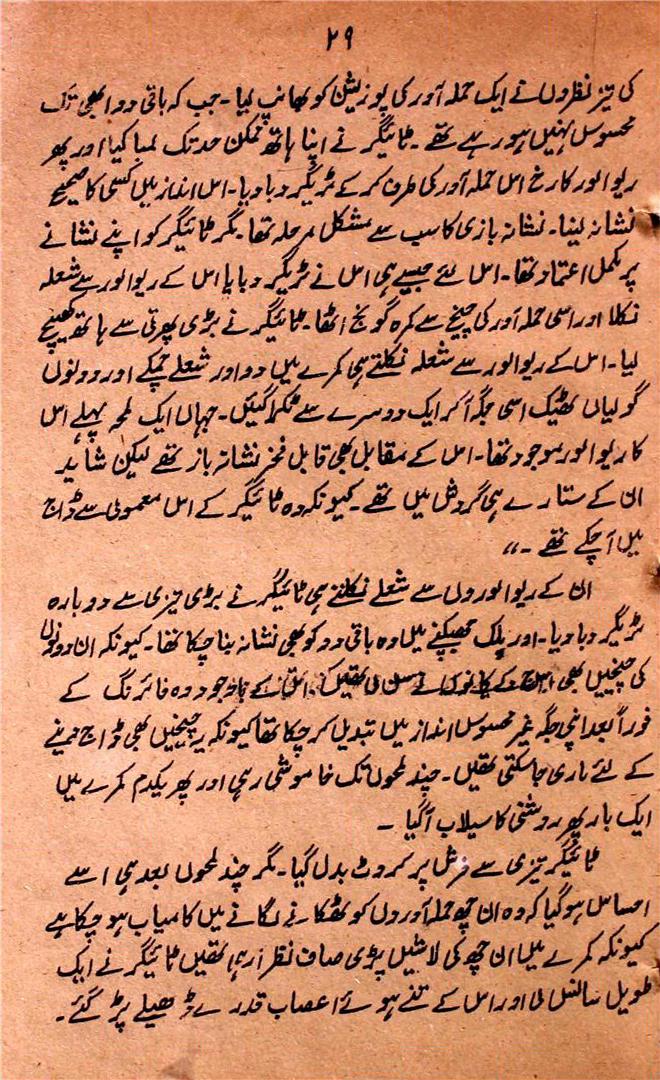 ۲۹
کی تیز نظروں نے ایک حملہ آور کی پوزیشن کو بھانپ لیا۔ جب کہ باقی دو ابھی تک
محسوس نہیں ہو رہے تھے۔ ٹائیگر نے اپنا ہاتھ ممکن حد تک لمبا کیا اور پھر
ریوالور کا رخ اس حملہ آور کی طرف کر کے ٹریگر دبا دیا۔ اس انداز میں کسی کا صحیح
نشانہ لینا۔ نشانہ بازی کا سب سے مشکل مرحلہ تھا۔ مگر ٹائیگر کو اپنے نشانے
پر مکمل اعتماد تھا۔ اس لئے جیسے ہی اس نے ٹریگر دبایا اس کے ریوالور سے شعلہ
نکلا اور اسی حملہ آور کی چیخ سے کمرہ گونج اٹھا۔ ٹائیگر نے بڑی پھرتی سے ہاتھ کھینچ
لیا۔ اس کے ریوالور سے شعلہ نکلتے ہی کمرے میں دو اور شعلے چمکے اور دونوں
گولیاں ٹھیک اسی جگہ آ کر ایک دوسرے سے ٹکرا گئیں۔ جہاں ایک لمحہ پہلے اس
کا ریوالور موجود تھا۔ اس کے مقابل بھی قابل فخر نشانہ باز تھے لیکن شاید
ان کے ستارے ہی گردش میں تھے۔ کیونکہ وہ ٹائیگر کے اس معمولی سے ڈاج
میں آ چکے تھے۔ "
ان کے ریوالوروں سے شعلے نکلتے ہی ٹائیگر نے بڑی تیزی سے دوبارہ
ٹریگر دبا دیا۔ اور پلک جھپکنے میں وہ باقی دو کو بھی نشانہ بنا چکا تھا۔ کیونکہ ان دونوں
کی چیخیں بھی اس کے کانوں نے سن لی تھیں۔ اس کے باوجود وہ فائرنگ کے
فوراً بعد اپنی جگہ غیر محسوس انداز میں تبدیل کر چکا تھا کیونکہ یہ چیخیں بھی ڈاج دینے
کے لئے ماری جا سکتی تھیں۔ چند لمحوں تک خاموشی رہی اور پھر یکدم کمرے میں
ایک بار پھر روشنی کا سیلاب آ گیا۔
ٹائیگر تیزی سے فرش پر کروٹ بدل گیا۔ مگر چند لمحوں بعد ہی اسے
احساس ہو گیا کہ وہ ان چھ حملہ آوروں کو ٹھکانے لگانے میں کامیاب ہو چکا ہے
کیونکہ کمرے میں ان چھ کی لاشیں پڑی صاف نظر آ رہی تھیں ٹائیگر نے ایک
طویل سانس لی اور اس کے تنے ہوئے اعصاب قدرے ڈھیلے پڑ گئے۔